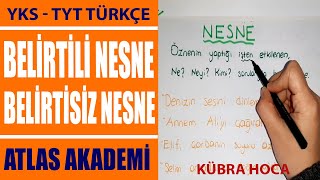 YKS - TYT TÜRKÇE
BELİRTİLİ NESNE
BELİRTİSİZ NESNE
ATLAS AKADEMİ
NESNE
Öznenin yaptığı işten etkilenen
Ne? Neyi? Kimi?
Denizin sesini
Annem Ali'yi
Elif, çorbanın suyunu
KÜBRA HOCA